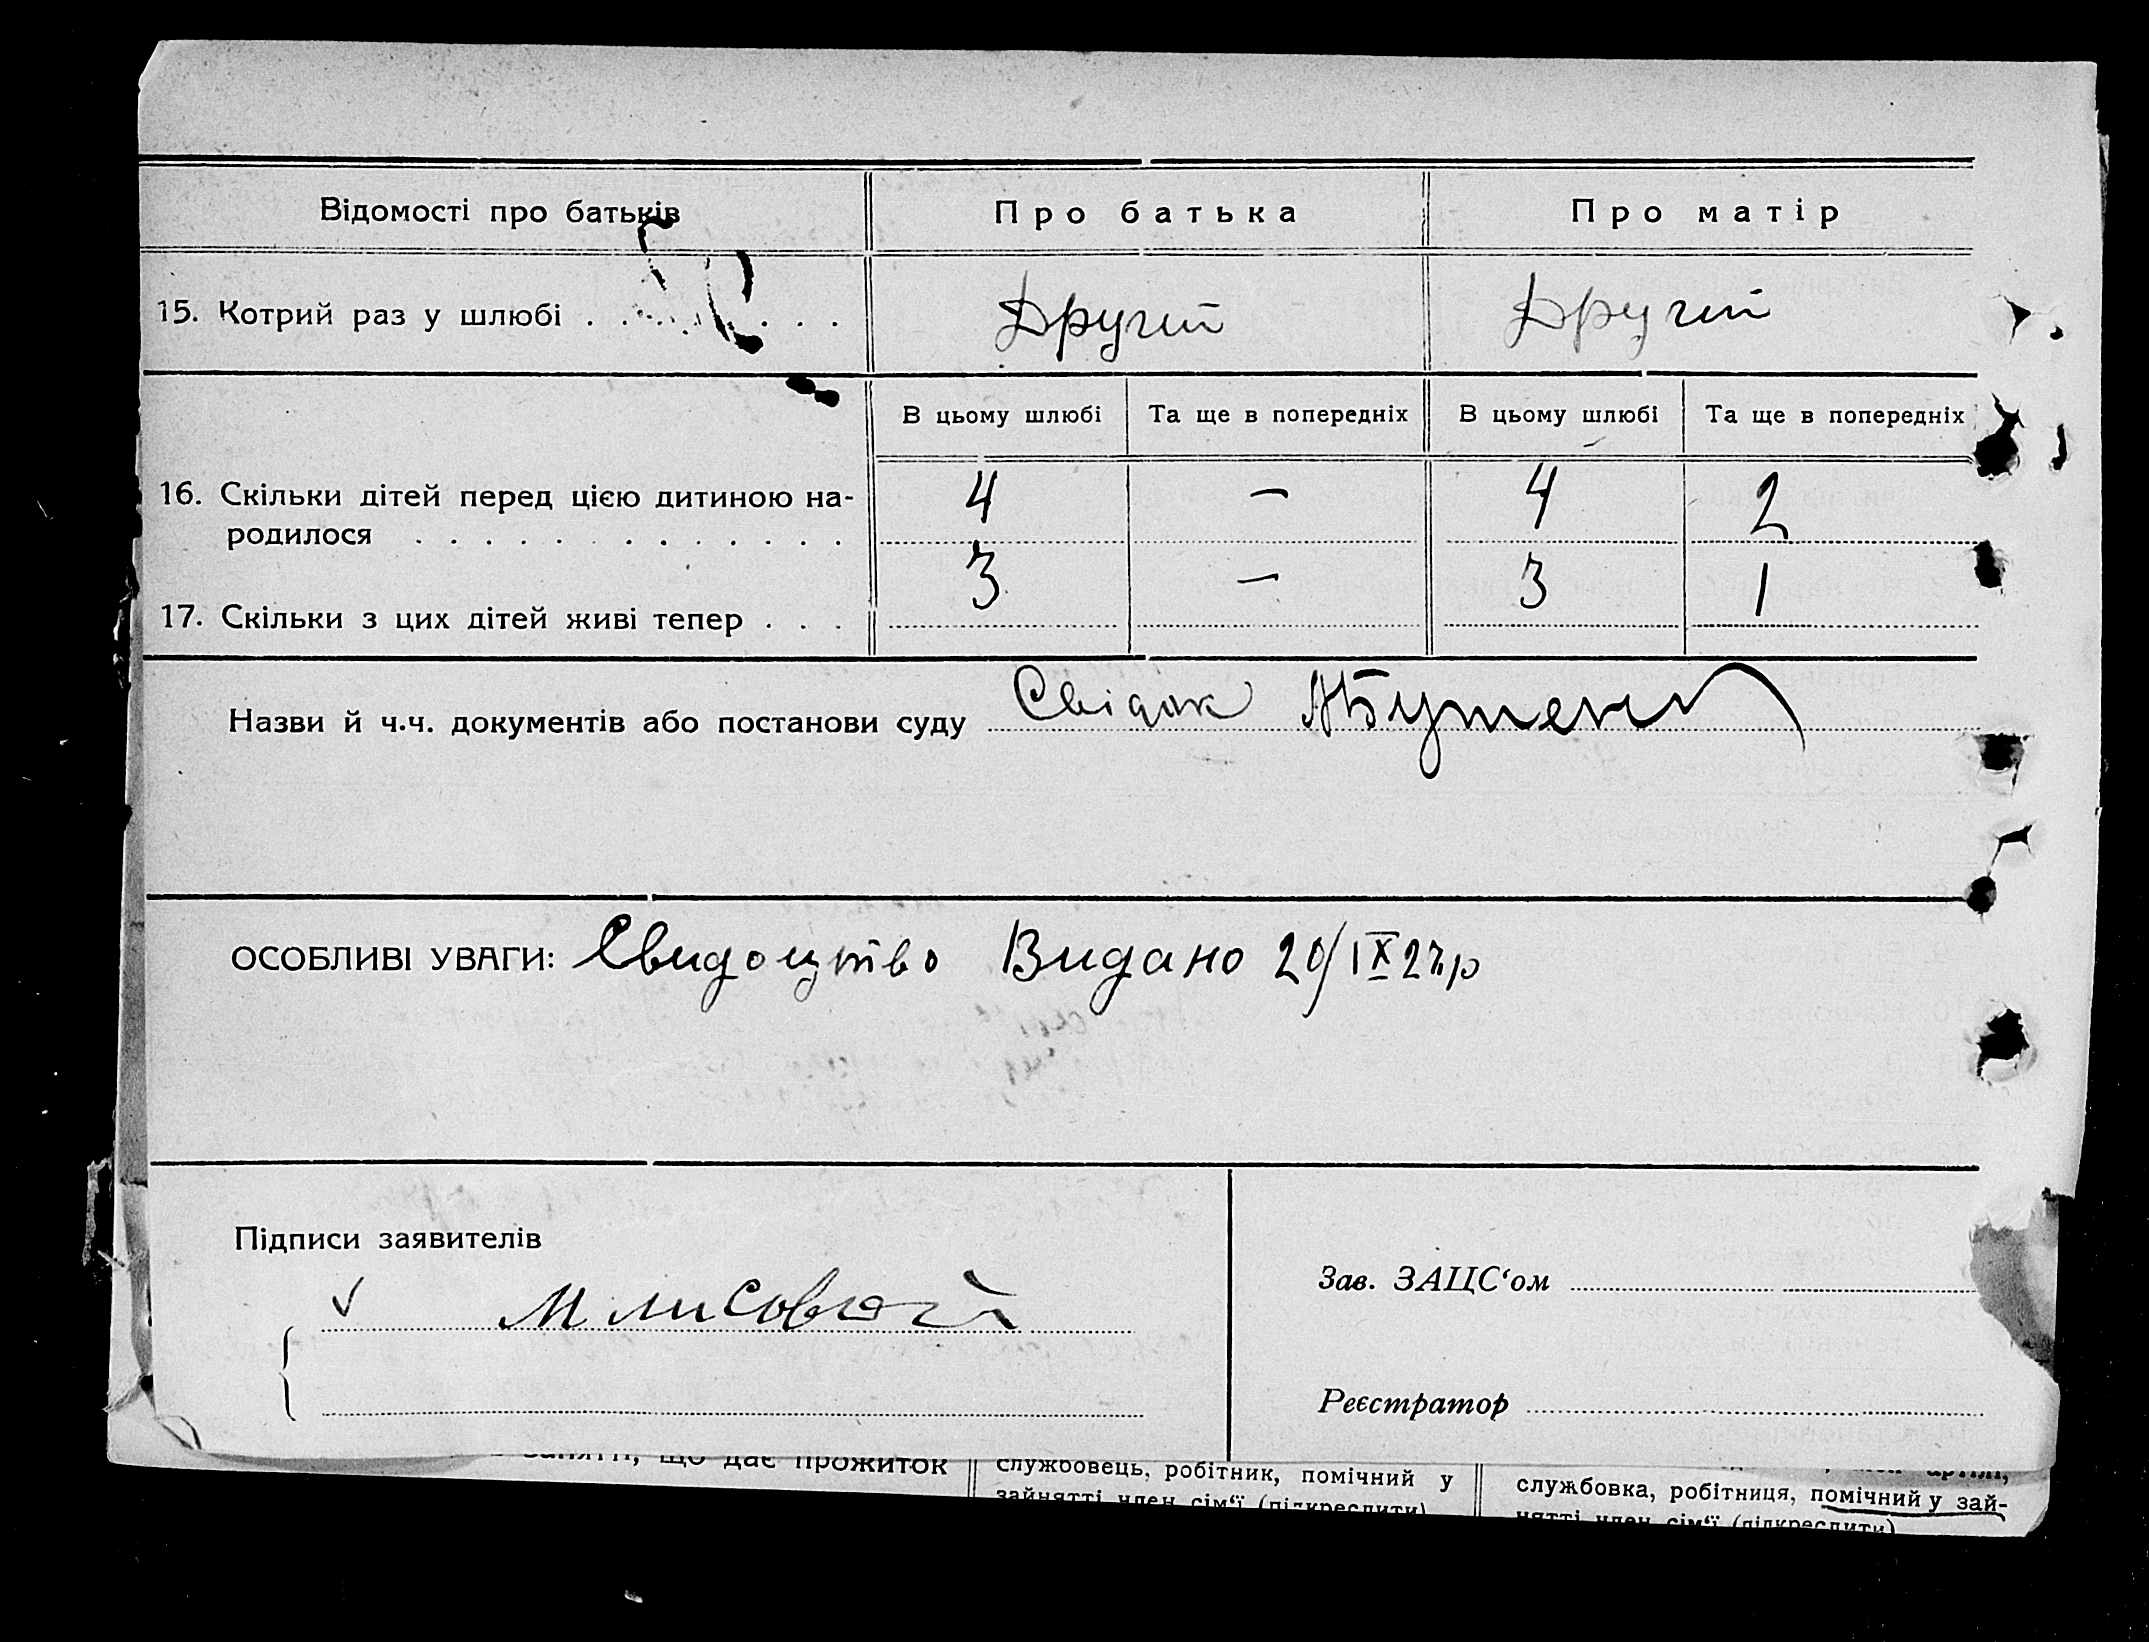 Відомості про батьків Про батька Про матір
15. Котрий раз у шлюбі . . . . . . . . Другий Другий
В цьому шлюбі Та ще в попередніх В цьому шлюбі Та ще в попередніх
16. Скільки дітей перед цією дитиною на- 4 — 4 2
родилося . . . . . . . . . . . . .
17. Скільки з цих дітей живі тепер . . . 3 — 3 1
Назви й ч.ч. документів або постанови суду Свідок
ОСОБЛИВІ УВАГИ: Свидоцтво Видано 20/IX 27 р
Підписи заявителів
М Лисовой
Зав. ЗАЦС‘ом
Реєстратор
занятті, що дає прожиток службовець, робітник, помічний у
зайнятті член сім‘ї (підкреслити)
службовка, робітниця, помічний у зай-
нятті член сім‘ї (підкреслити)